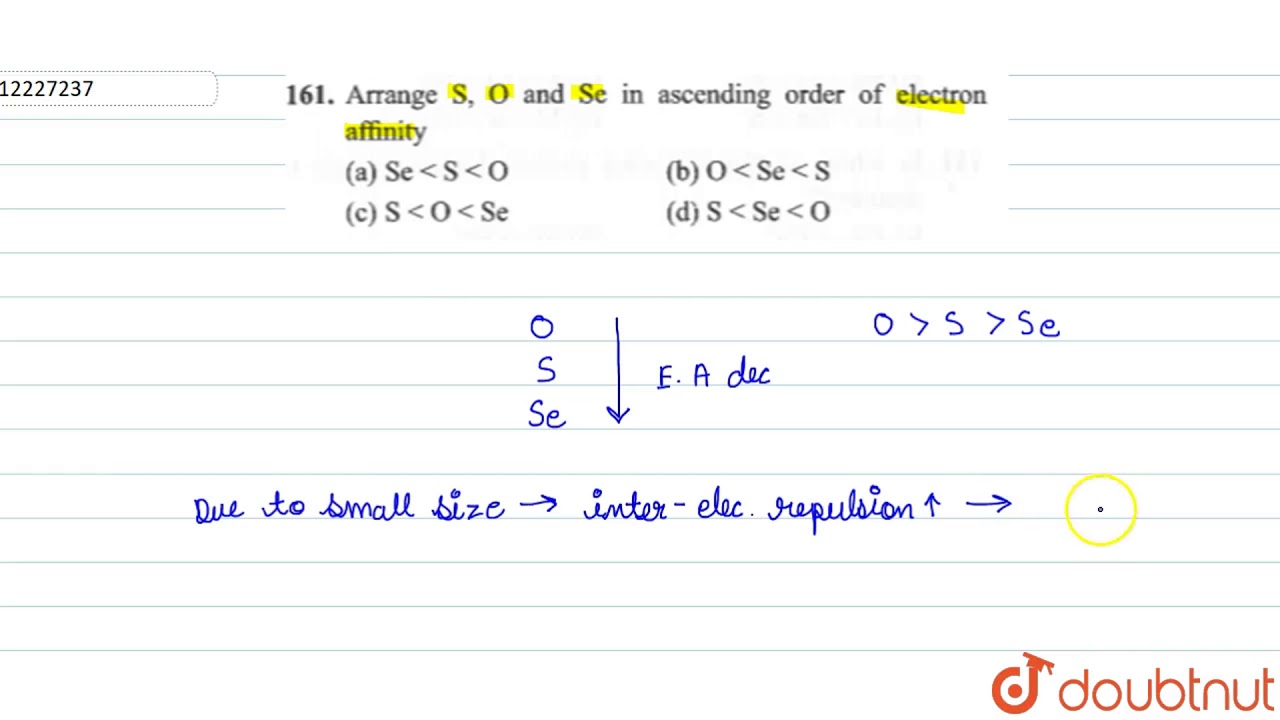 12227237
161. Arrange S, O and Se in ascending order of electron
affinity
(a) Se < S < O (b) O < Se < S
(c) S < O < Se (d) S < Se < O
O
S
Se
E. A dec
O > S > Se
Due to small size → inter-elec. repulsion ↑ →
doubtnut